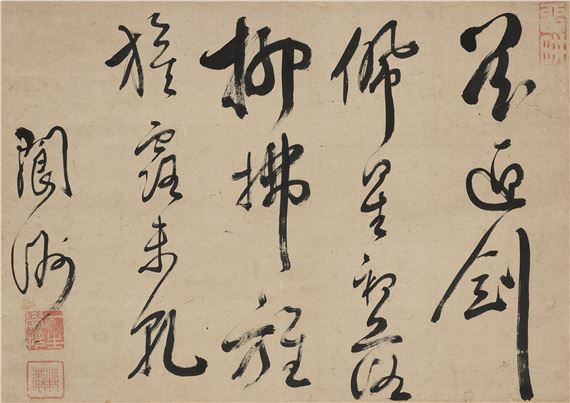 花迎劍
佩星初落
柳拂旌
旗露未乾